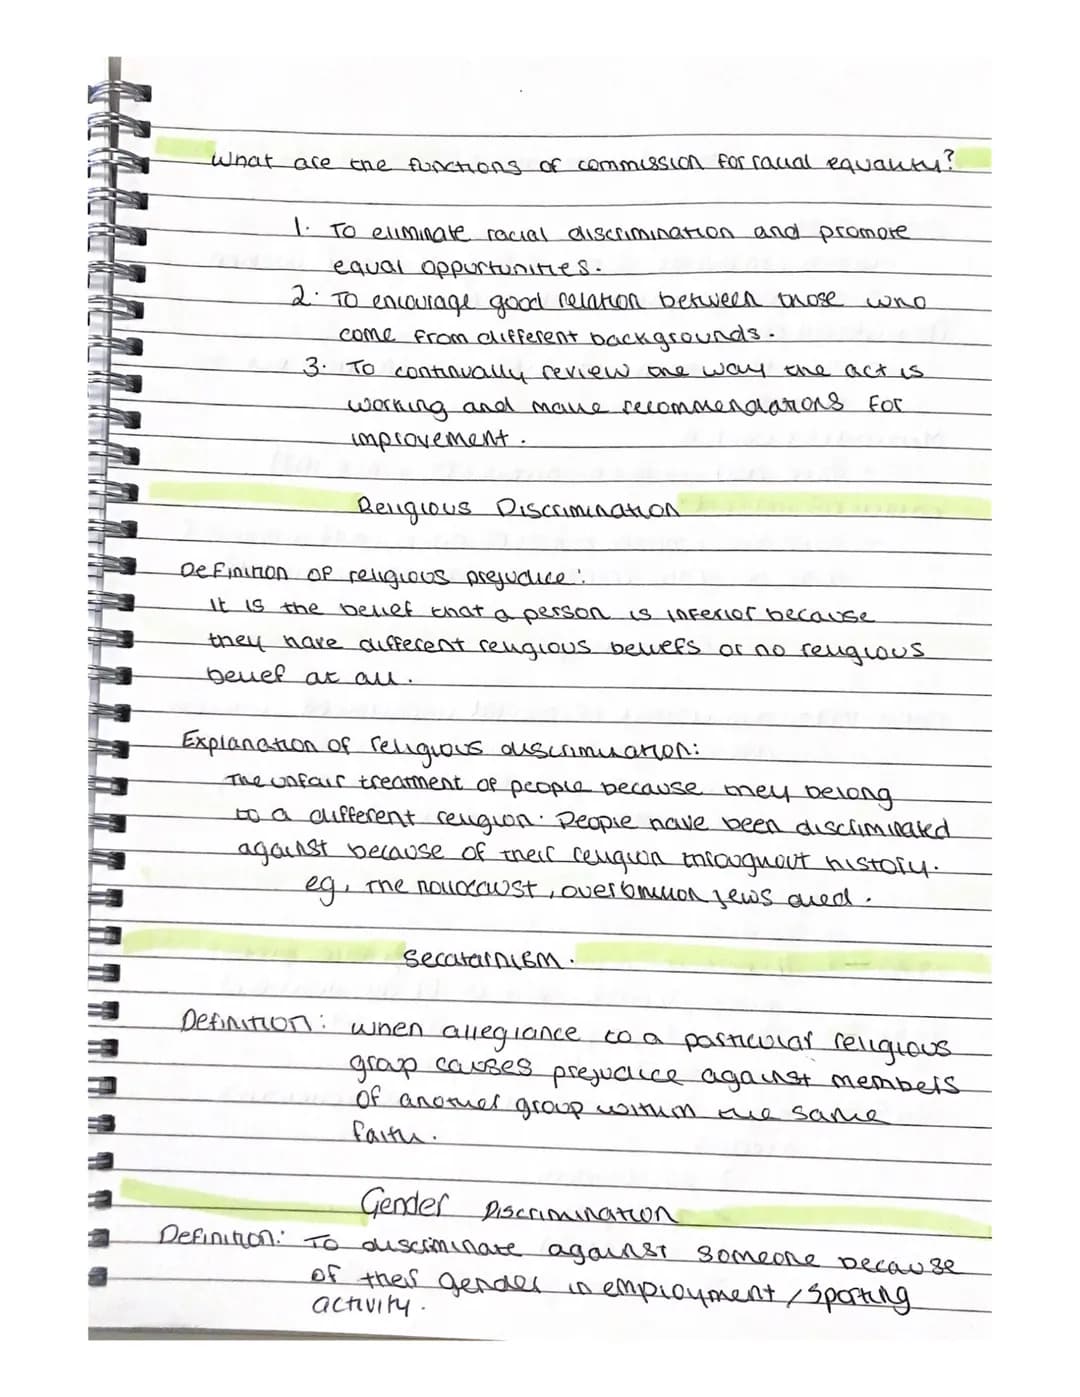 What are the functions of commission for racial equality?
1. To eliminate racial discrimination and promote
equal opportunities.
2. To encourage good relation between those who
come from different backgrounds.
3. To continually review the way the act is
working and make recommendations for
improvement.
Religious Discrimination
Definition of religious prejudice:
It is the belief that a person is inferior because
they have different religious beliefs or no religious
belief at all.
Explanation of religious discrimination:
The unfair treatment of people because they belong
to a different religion. People have been discriminated
against because of their religion throughout history.
eg, The holocaust, over 6 million jews died.
Secatarnism.
Definition: when allegiance to a particular religious
group causes prejudice against members
of another group within the same
faith.
Gender Discrimination
Definition: To discriminate against someone because
of their gender in employment / sporting
activity.